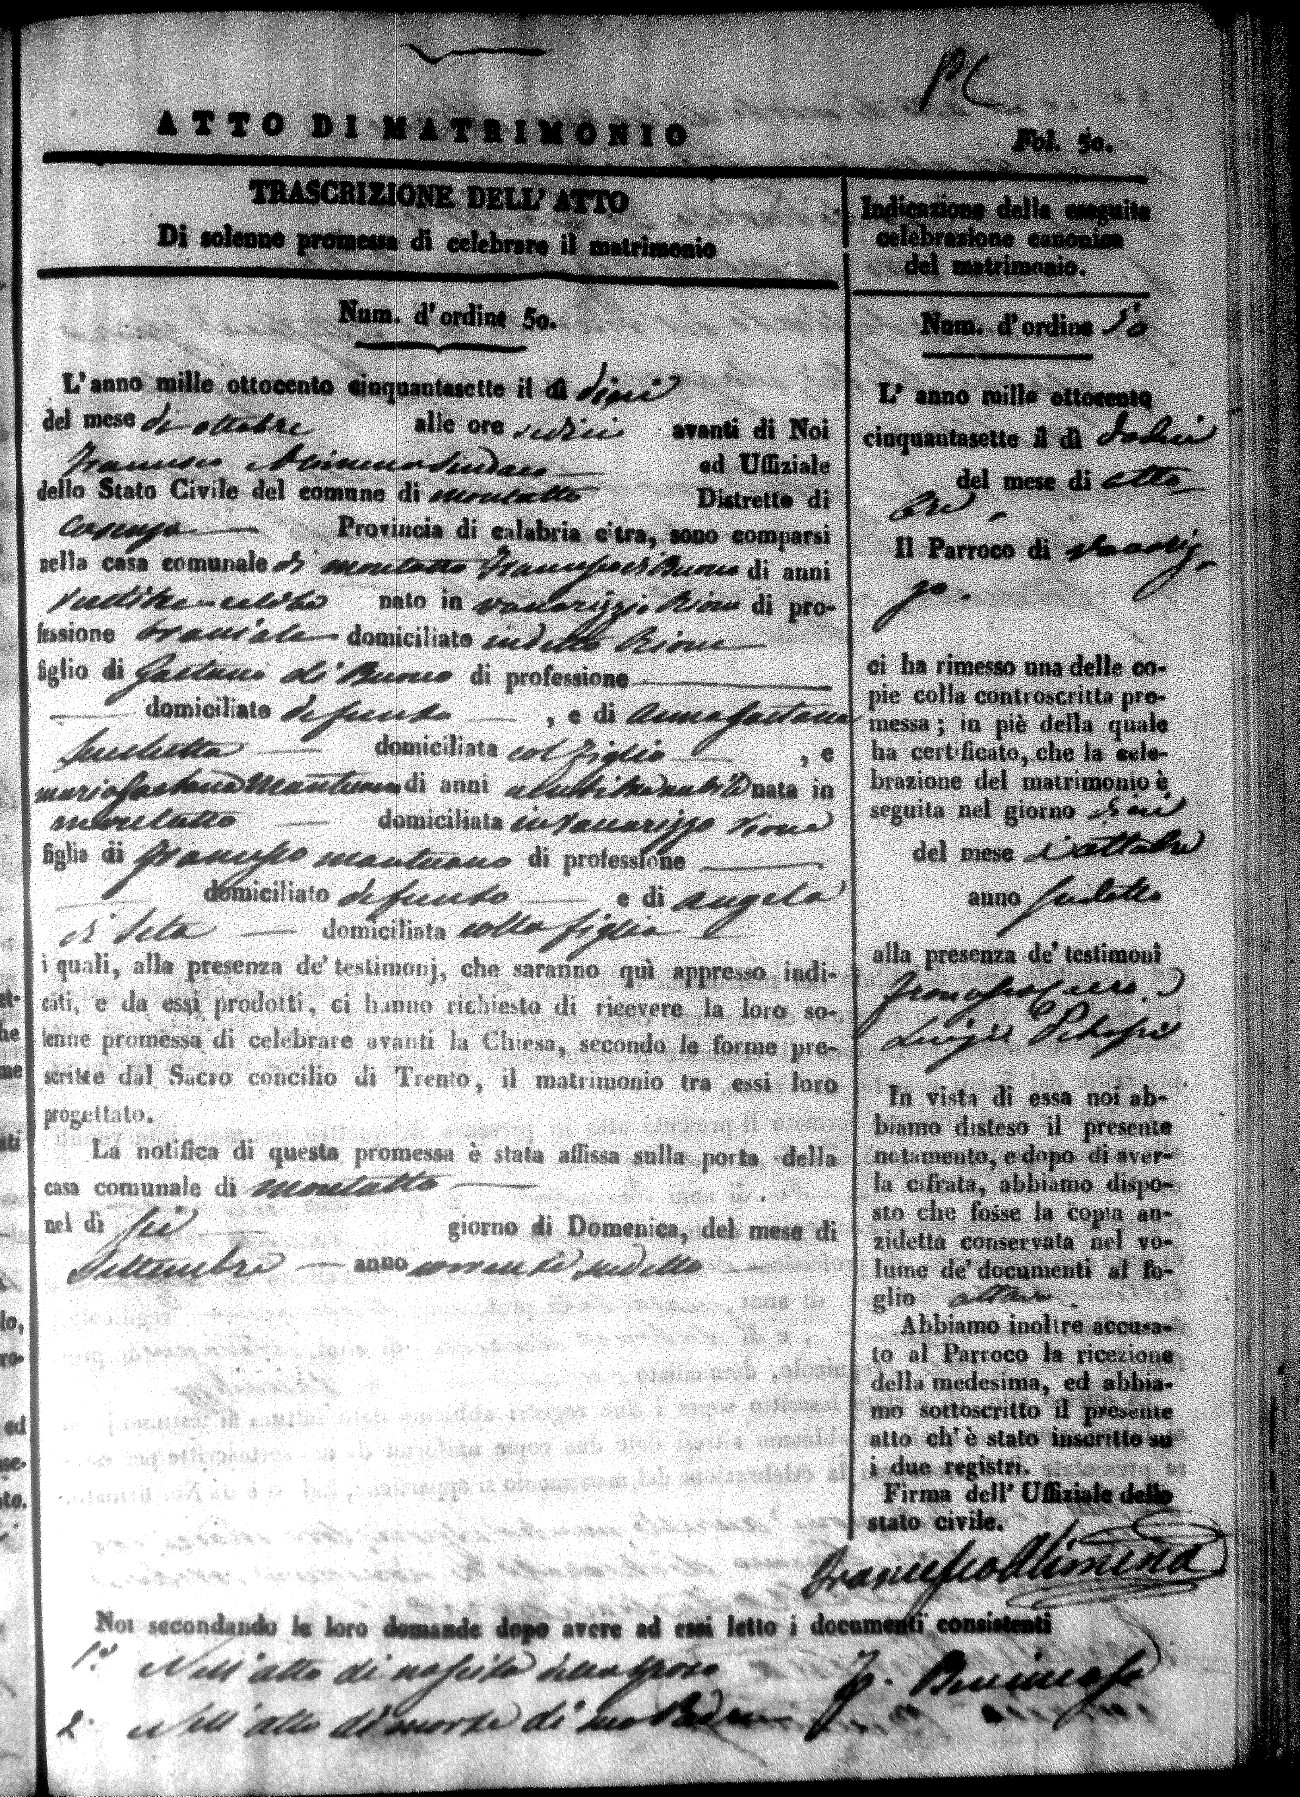 ATTO DI MATRIMONIO
Fol. 50.
TRASCRIZIONE DELL' ATTO
Di solenne promessa di celebrare il matrimonio
Num. d'ordine 50.
L'anno mille ottocento cinquantasette il dì
del mese di ottobre alle ore avanti di Noi
Francesco Alimena Sindaco ed Uffiziale
dello Stato Civile del comune di Montalto Distretto di
Cosenza Provincia di calabria citra, sono comparsi
nella casa comunale di Montalto Francesco di Buono di anni
nato in Vaccarizzo Rione di pro-
fessione bracciale domiciliato in detto Rione
figlio di Gaetano di Buono di professione
domiciliato defunto , e di Anna Gaetana
domiciliata col figlio , e
Maria Gaetana Mantuano di anni nata in
Montalto domiciliata in Vaccarizzo Rione
figlia di Francesco Mantuano di professione
domiciliato defunto e di Angela
di Seta domiciliata colla figlia
i quali, alla presenza de' testimonj, che saranno quì appresso indi-
cati, e da essi prodotti, ci hanno richiesto di ricevere la loro so-
lenne promessa di celebrare avanti la Chiesa, secondo le forme pre-
scritte dal Sacro concilio di Trento, il matrimonio tra essi loro
progettato.
La notifica di questa promessa è stata affissa sulla porta della
casa comunale di Montalto
nel dì sei giorno di Domenica, del mese di
Settembre anno corrente sudetto
Indicazione della eseguita
celebrazione canonica
del matrimonio.
Num. d'ordine 50
L' anno mille ottocento
cinquantasette il dì dodici
del mese di otto
bre
Il Parroco di
ci ha rimesso una delle co-
pie colla controscritta pro-
messa; in piè della quale
ha certificato, che la cele-
brazione del matrimonio è
seguita nel giorno
del mese d'ottobre
anno sudetto
alla presenza de' testimoni
Francesco
Luigi
In vista di essa noi ab-
biamo disteso il presente
notamento, e dopo di aver-
la cifrata, abbiamo dispo-
sto che fosse la copia an-
zidetta conservata nel vo-
lume de' documenti al fo-
glio
Abbiamo inoltre accusa-
to al Parroco la ricezione
della medesima, ed abbia-
mo sottoscritto il presente
atto ch' è stato inscritto su
i due registri.
Firma dell' Uffiziale dello
stato civile.
Francesco Alimena
Noi secondando le loro domande dopo avere ad essi letto i documenti consistenti
1.° Nell'atto di nascita dello sposo
2. Nell'atto di morte di suo Padre